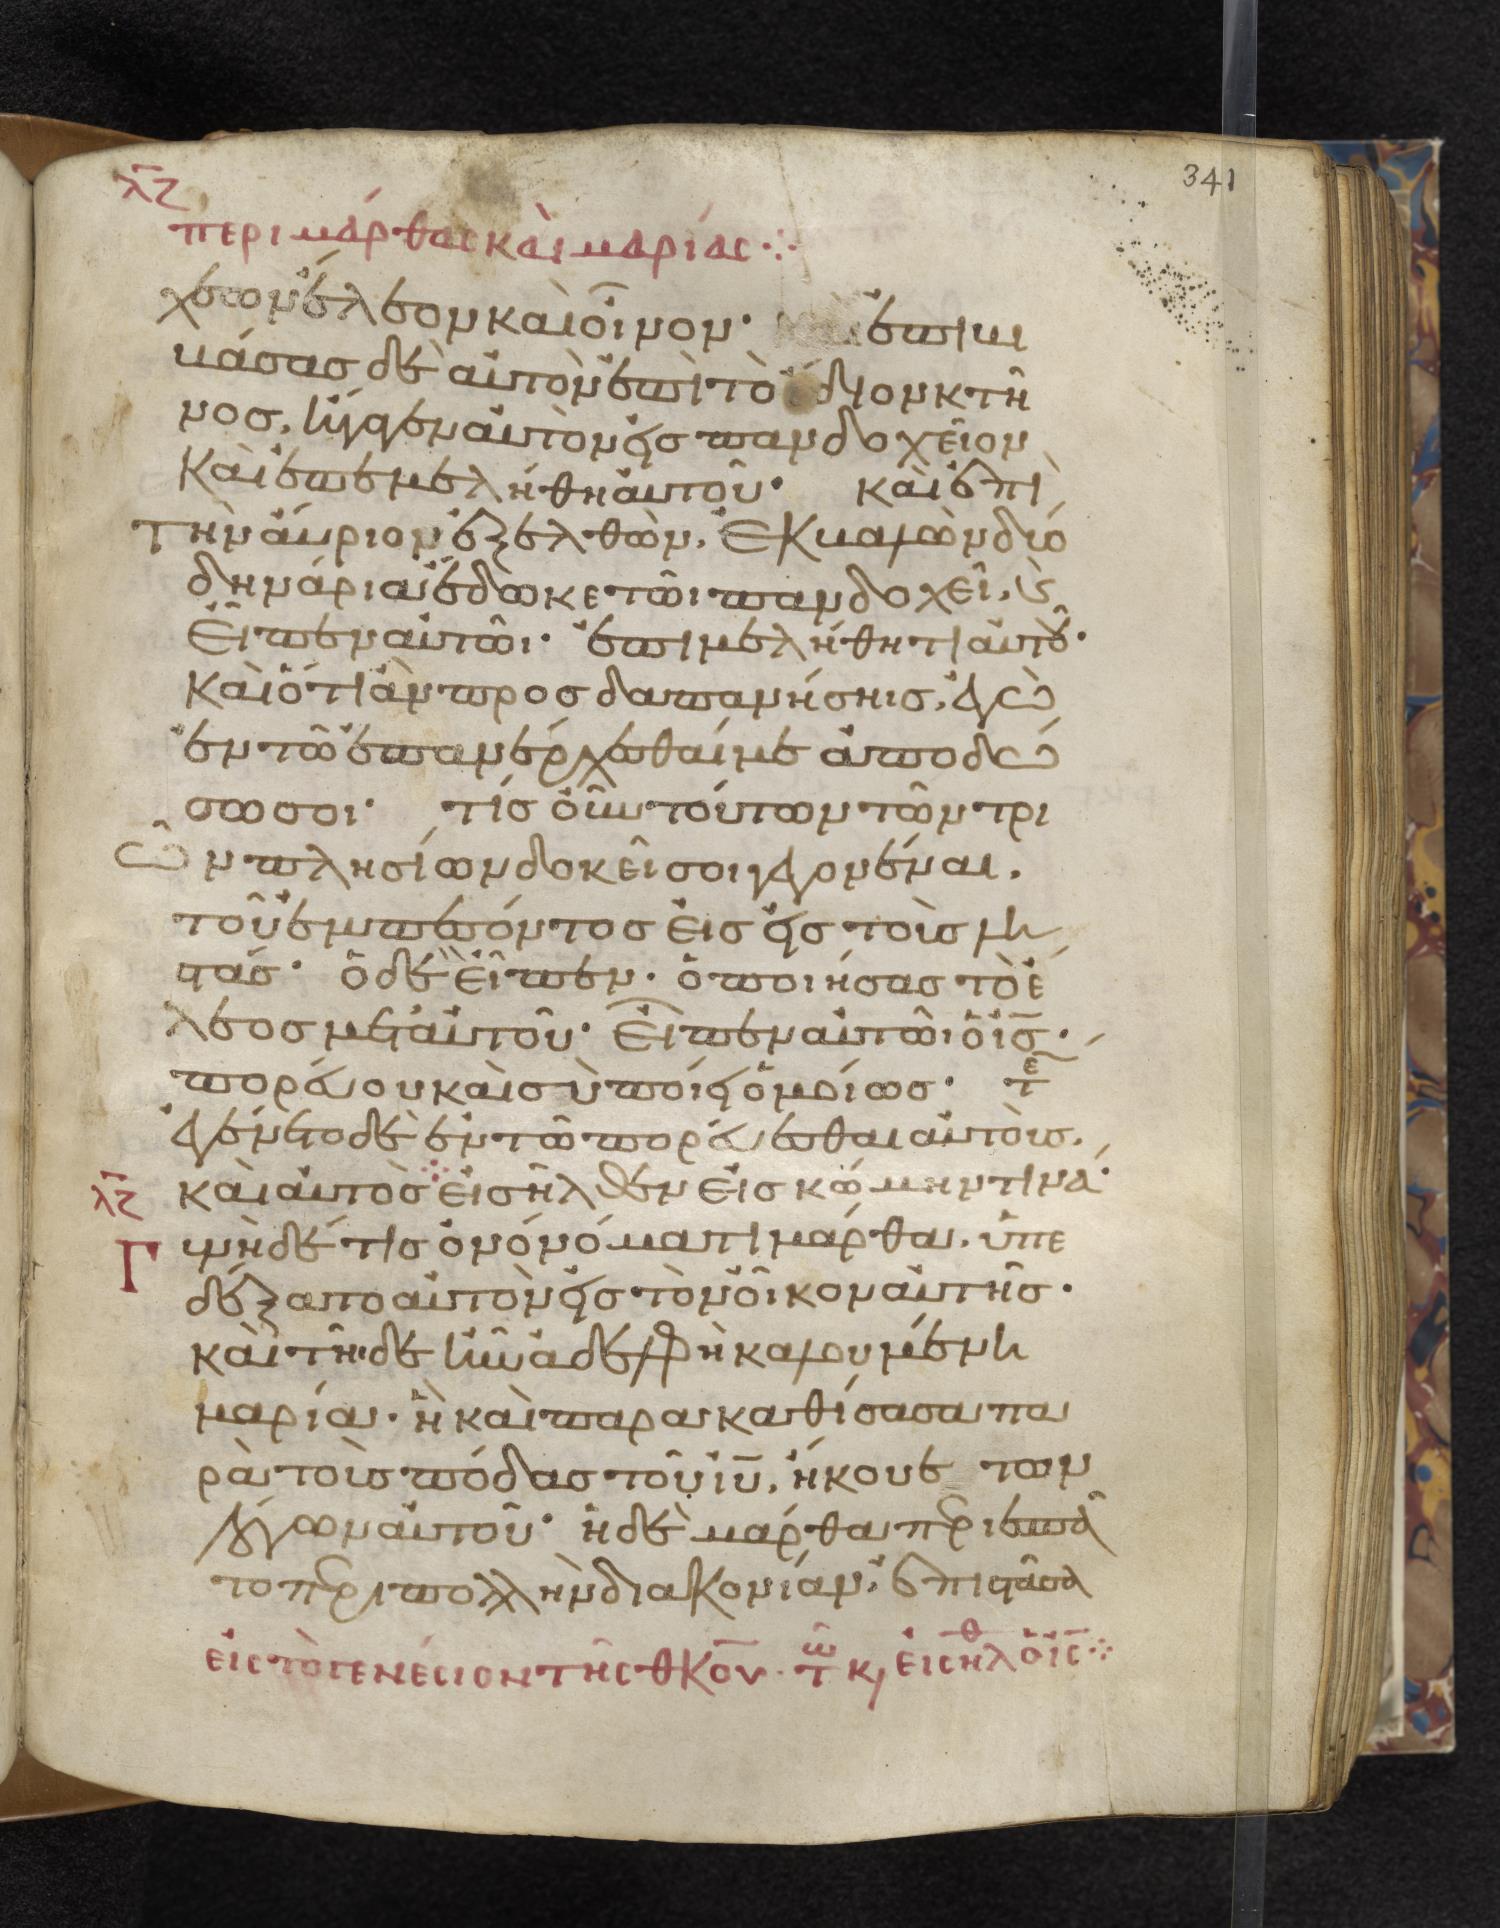 341
λζ
περι μάρθας και μαρίας
χέων ἔλεον καὶ οἶνον· καὶ ἐπιβι
βάσας δὲ αὐτὸν ἐπὶ τὸ ἴδιον κτῆ
νος, ἤγαγεν αὐτὸν εἰς πανδοχεῖον
Καὶ ἐπεμελήθη αὐτοῦ· καὶ ἐπὶ
τὴν αὔριον ἐξελθὼν, ἐκβαλὼν δύο
δηνάρια ἔδωκε τῶι πανδοχεῖ, καὶ
εἶπεν αὐτῶι· ἐπιμελήθητι αὐτοῦ·
Καὶ ὅτι ἂν προσδαπανήσηις, ἐγὼ
ἐν τῶ ἐπανέρχεσθαί με ἀποδώ
σω σοι· τίς οὖν τούτων τῶν τρι
ῶν πλησίων δοκεῖ σοι γεγονέναι.
τοῦ ἐμπεσόντος εἰς τοὺς λη
στάς· ὁ δὲ εἶπεν· ὁ ποιήσας τὸ ἔ
λεος μετ' αὐτοῦ· Εἶπεν αὐτῶι ὁ ἰς·
πορεύου καὶ σὺ ποίει ὁμοίως· τε
ἐγένετο δὲ ἐν τῶ πορεύεσθαι αὐτοὺς,
λζ καὶ αὐτὸς εἰσῆλθεν εἰς κώμην τινά·
Γ υνὴ δέ τις ὀνόματι μάρθα, ὑπε
δέξατο αὐτὸν εἰς τὸν οἶκον αὐτῆς·
καὶ τῆιδε ἦν ἀδελφὴ καλουμένη
μαρία· ἣ καὶ παρακαθίσασα πα
ρὰ τοὺς πόδας τοῦ ιυ, ἤκουε των
λόγων αὐτοῦ· ἡ δὲ μάρθα περιεσπᾶ
το περι πολλὴν διακονίαν, ἐπιστᾶσα
εἰς τὸ γενέσιον τῆς θκου· τω κ, εἰσηλθ ὁ ις